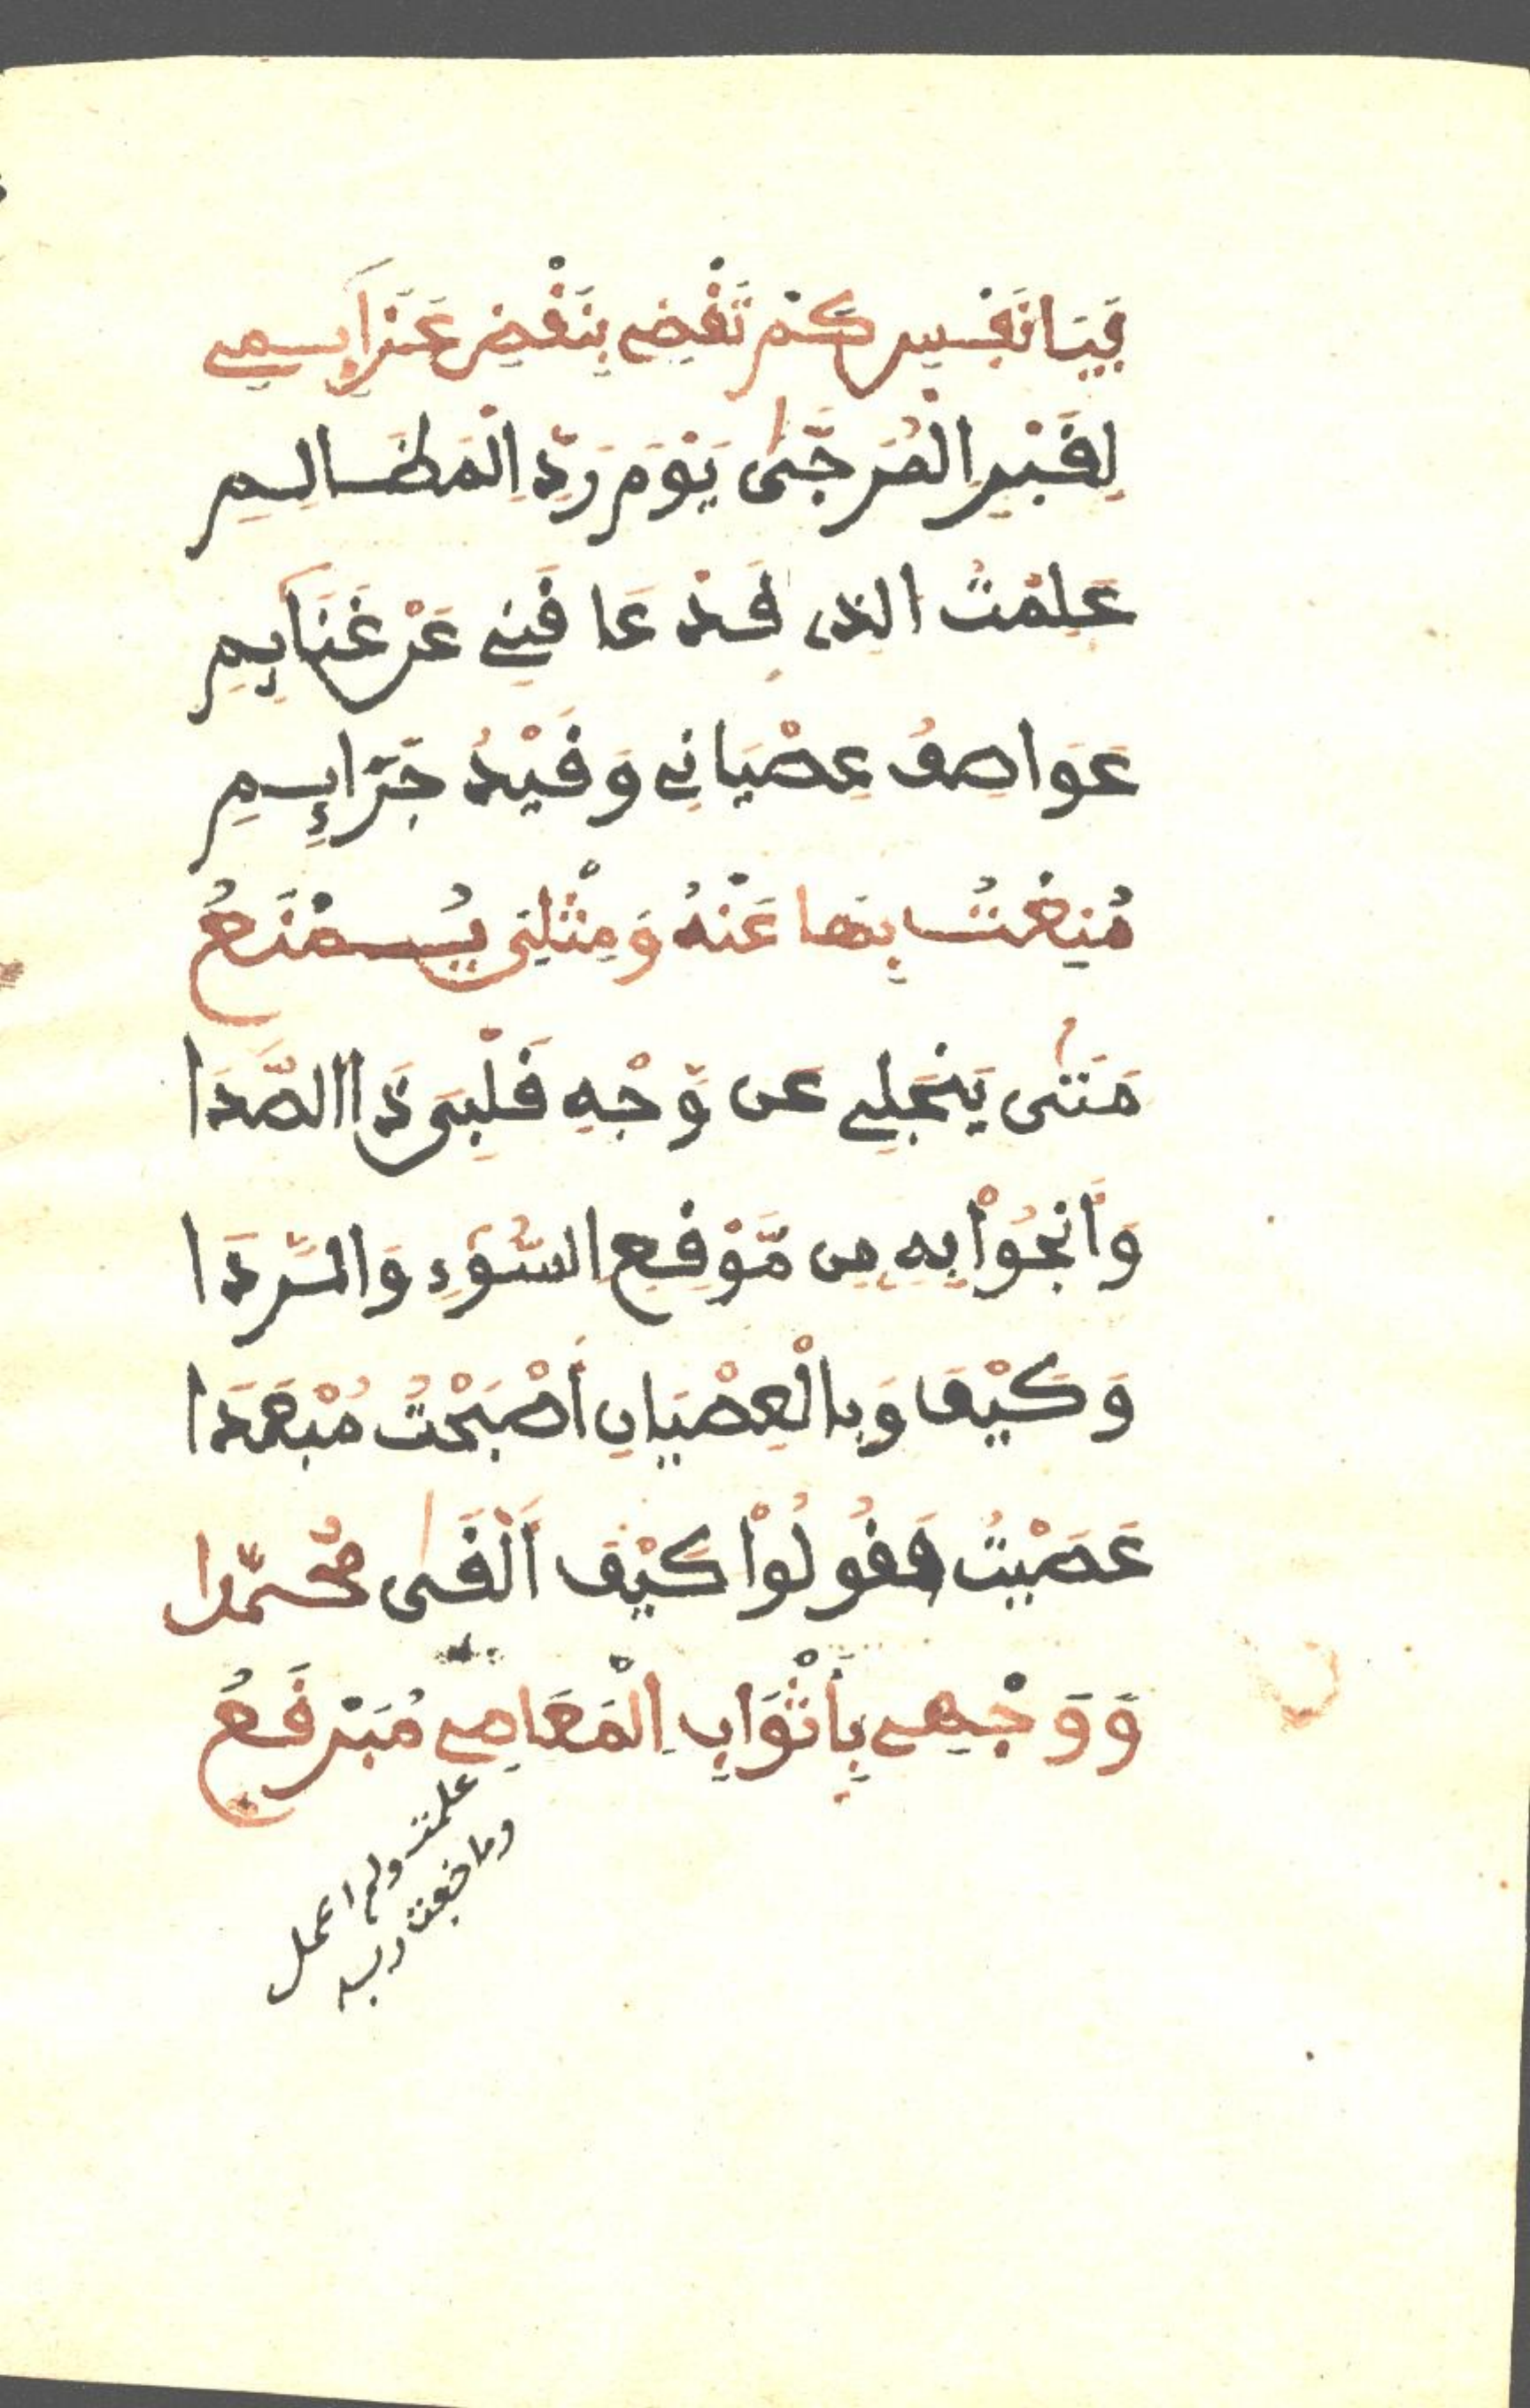 فَيَا نَفْسِ كَمْ تَقْضِي بِنَقْضِ عَزَائِمِي
لِقَبْرِ الْمُرَجَّىٰ يَوْمَ رَدِّ الْمَظَالِمِ
عَلِمْتُ الذِي قَدْ عَاقَنِي عَنْ غَنَائِمِ
عَوَاصِفُ عِصْيَانِي وَقَيْدُ جَرَائِمِ
مُنِعْتُ بِهَا عَنْهُ وَمِثْلِيَ يُمْنَعُ
مَتَىٰ يَنْجَلِي عَن وَّجْهِ قَلْبِيَ ذَا الصَّدَا
وَأَنْجُواْ بِهِ مِن مَّوْقِعِ السُّوءِ وَالرَّدَا
وَكَيْفَ وَبِالْعِصْيَانِ أَصْبَحْتُ مُبْعَدَا
عَصَيْتُ فَقُولُواْ كَيْفَ أَلْقَىٰ مُحَمَّدا
وَوَجْهِي بِأَثْوَابِ الْمَعَاصِي مُبَرْقَعُ
علمت ولم اعمل
وما خفت ربه